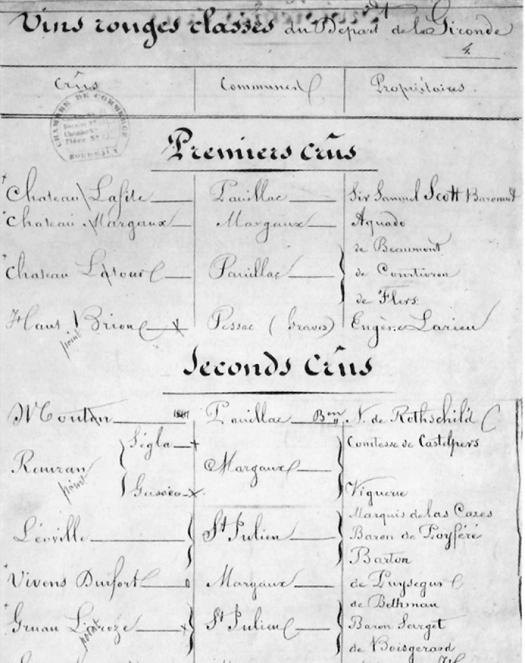 Vins rouges classés du Départ. de la Gironde
4.
Crûs Communes Propriétaires
CHAMBRE DE COMMERCE
BORDEAUX
Premiers crûs
Chateau Lafite Pauillac Sir Samuel Scott Baronnet
Chateau Margaux Margaux Aguado
de Beaumont
Chateau Latour Pauillac de Courtivron
de Flers
Haut Brion Pessac (Graves) Eugène Larieu
point
Seconds Crûs
Mouton Pauillac Bon N. de Rothschild
Ségla Comtesse de Castelpers
Rauzan Margaux
point
Gassies Viguerie
Marquis de las Cases
Léoville St Julien Baron de Poyféré
Barton
Vivens Durfort Margaux de Puysegur
de Bethman
Gruau Laroze St Julien Baron Sarget
point
de Boisgerard